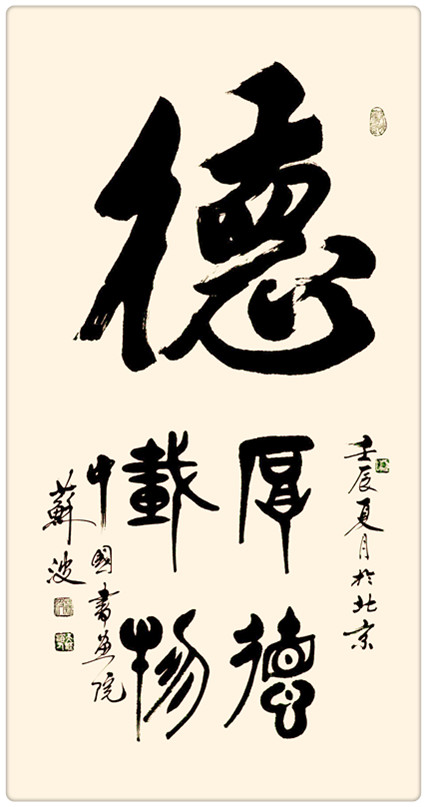 德
壬辰夏月於北京
厚德
載物
中國書畫院
蘇波